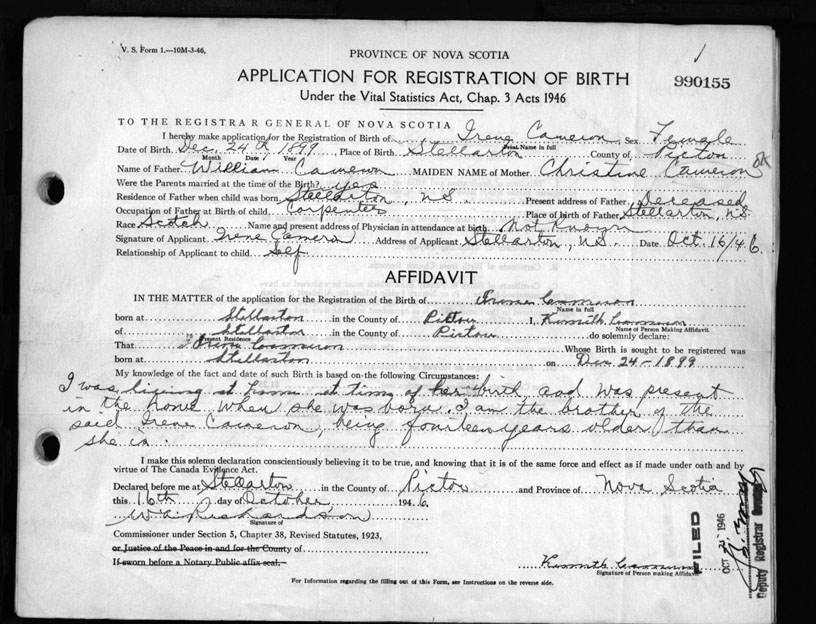 V. S. Form 1.—10M-3-46.
1
PROVINCE OF NOVA SCOTIA
APPLICATION FOR REGISTRATION OF BIRTH
990155
Under the Vital Statistics Act, Chap. 3 Acts 1946
TO THE REGISTRAR GENERAL OF NOVA SCOTIA
I hereby make application for the Registration of Birth of Irene Cameron Sex Female
Print Name in full
Date of Birth Dec. 24th 1899 Place of Birth Stellarton County of Pictou
Month Date Year
Name of Father William Cameron MAIDEN NAME of Mother Christine Cameron OK
Were the Parents married at the time of the Birth? yes
Residence of Father when child was born Stellarton, N.S. Present address of Father Deceased
Occupation of Father at Birth of child Carpenter Place of birth of Father Stellarton, N.S.
Race Scotch Name and present address of Physician in attendance at birth Not Known
Signature of Applicant Irene Cameron Address of Applicant Stellarton, N.S. Date Oct. 16/46.
Relationship of Applicant to child Self
AFFIDAVIT
IN THE MATTER of the application for the Registration of the Birth of Irene Cameron
Name in full
born at Stellarton in the County of Pictou I, Kenneth Cameron
Name of Person Making Affidavit
of Stellarton in the County of Pictou do solemnly declare:
Present Residence
That Irene Cameron Whose Birth is sought to be registered was
born at Stellarton on Dec 24-1899
My knowledge of the fact and date of such Birth is based on the following Circumstances:
I was living at home at time of her birth and was present
in the home when she was born. I am the brother of the
said Irene Cameron, being fourteen years older than
she is.
I make this solemn declaration conscientiously believing it to be true, and knowing that it is of the same force and effect as if made under oath and by
virtue of The Canada Evidence Act.
Declared before me at Stellarton in the County of Pictou and Province of Nova Scotia
this 16th day of October, 1946.
Richardson
Signature of
Commissioner under Section 5, Chapter 38, Revised Statutes, 1923,
or Justice of the Peace in and for the County of
If sworn before a Notary Public affix seal.
Kenneth Cameron
Signature of Person making Affidavit
For Information regarding the filling out of this Form, see Instructions on the reverse side.
FILED
OCT 1946
Deputy Registrar General